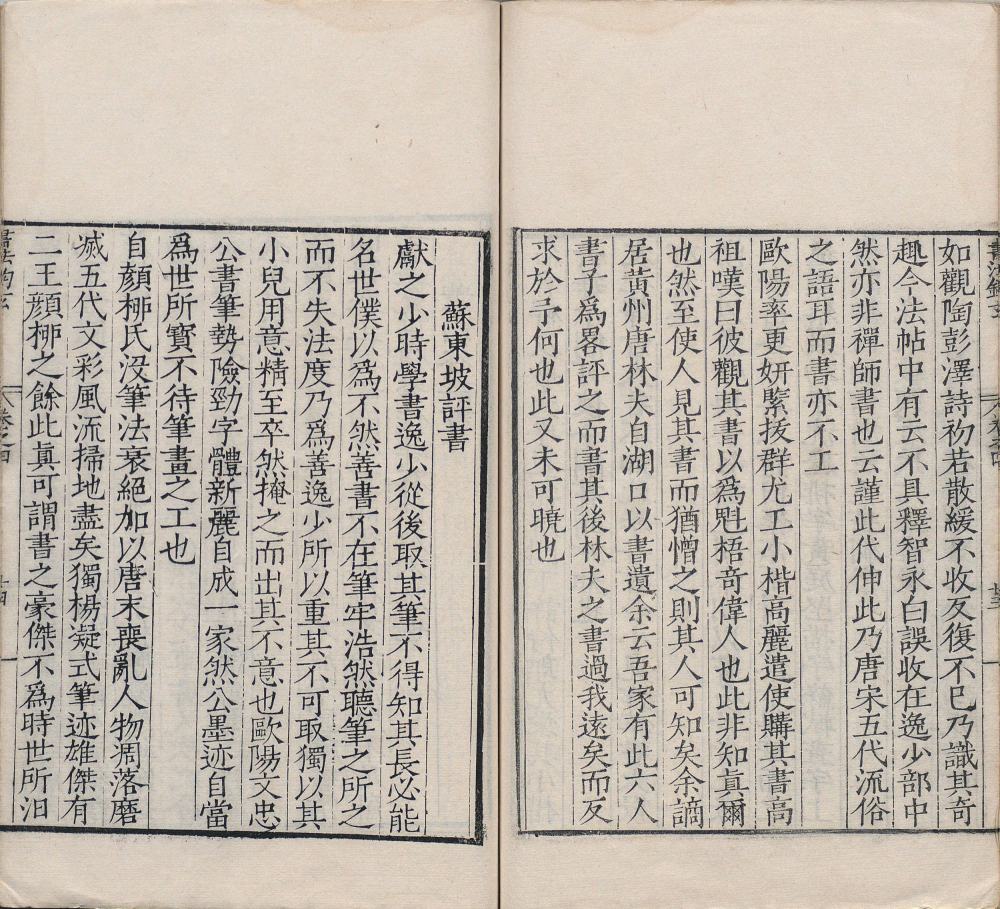 如觀陶彭澤詩初若散緩不收反復不已乃識其奇
趣今法帖中有云不具釋智永白誤收在逸少部中
然亦非禪師書也云謹此代伸此乃唐宋五代流俗
之語耳而書亦不工
歐陽率更妍緊拔群尤工小楷高麗遣使購其書高
祖嘆曰彼觀其書以爲魁梧奇偉人也此非知真爾
也然至使人見其書而猶憎之則其人可知矣余謫
居黃州唐林夫自湖口以書遺余云吾家有此六人
書子爲畧評之而書其後林夫之書過我遠矣而反
求於予何也此又未可曉也
蘇東坡評書
獻之少時學書逸少從後取其筆不得知其長必能
名世僕以爲不然善書不在筆牢浩然聽筆之所之
而不失法度乃爲善逸少所以重其不可取獨以其
小兒用意精至卒然掩之而出其不意也歐陽文忠
公書筆勢險勁字體新麗自成一家然公墨迹自當
爲世所寶不待筆畫之工也
自顏栁氏没筆法衰絕加以唐末喪亂人物凋落磨
滅五代文彩風流掃地盡矣獨楊凝式筆迹雄傑有
二王顏栁之餘此真可謂書之豪傑不爲時世所汨
卷之四